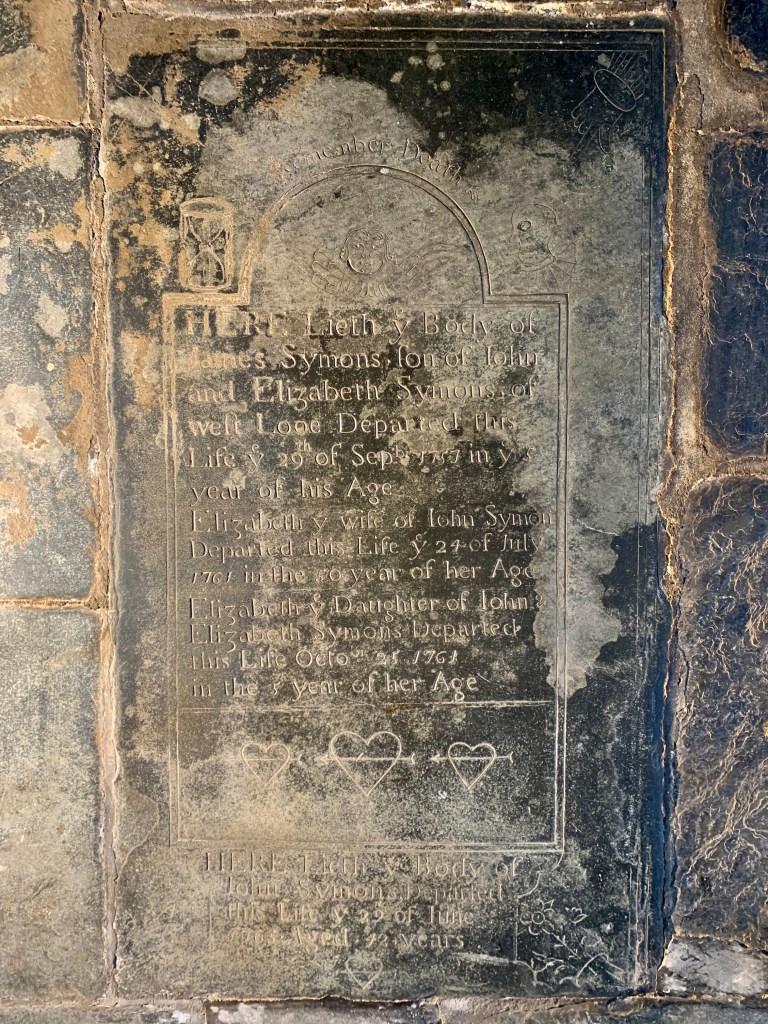 Remember Death
HERE Lieth ẏ Body of
James Symons, ſon of John
and Elizabeth Symons, of
weſt Looe Departed this
Life ẏ 29th of Sepbr 1757 in ẏ 5
year of his Age
Elizabeth ẏ wife of John Symon
Departed this Life ẏ 24 of July
1761 in the 50 year of her Age
Elizabeth ẏ Daughter of John &
Elizabeth Symons Departed
this Life Octor 25 1761
in the 5 year of her Age
HERE Lieth ẏ Body of
John Symons Departed
this Life ẏ 29 of June
Aged 72 years